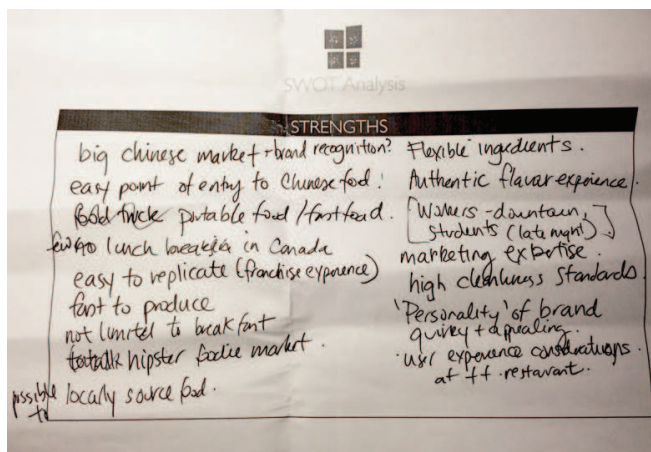 SWOT Analysis
STRENGTHS
big chinese market + brand recognition?
easy point of entry to Chinese food.
portable food / fast food.
lunch in Canada
easy to replicate (franchise experience)
fast to produce
not limited to breakfast
hipster foodie market.
possible to locally source food.
Flexible ingredients.
Authentic flavor experience.
[Workers - downtown,
students (late night).]
marketing expertise.
high cleanliness standards.
'Personality' of brand
quirky + appealing.
user experience considerations
at ff restaurant.